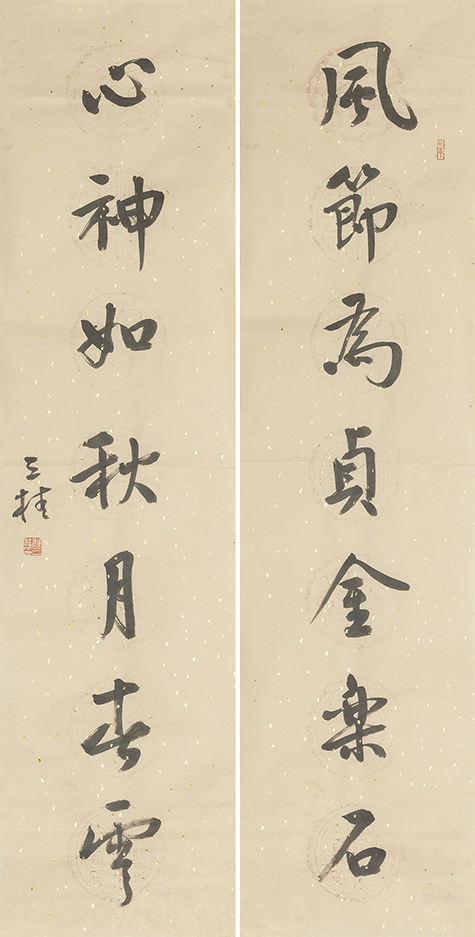 風節為貞金樂石
心神如秋月春雲
三桂